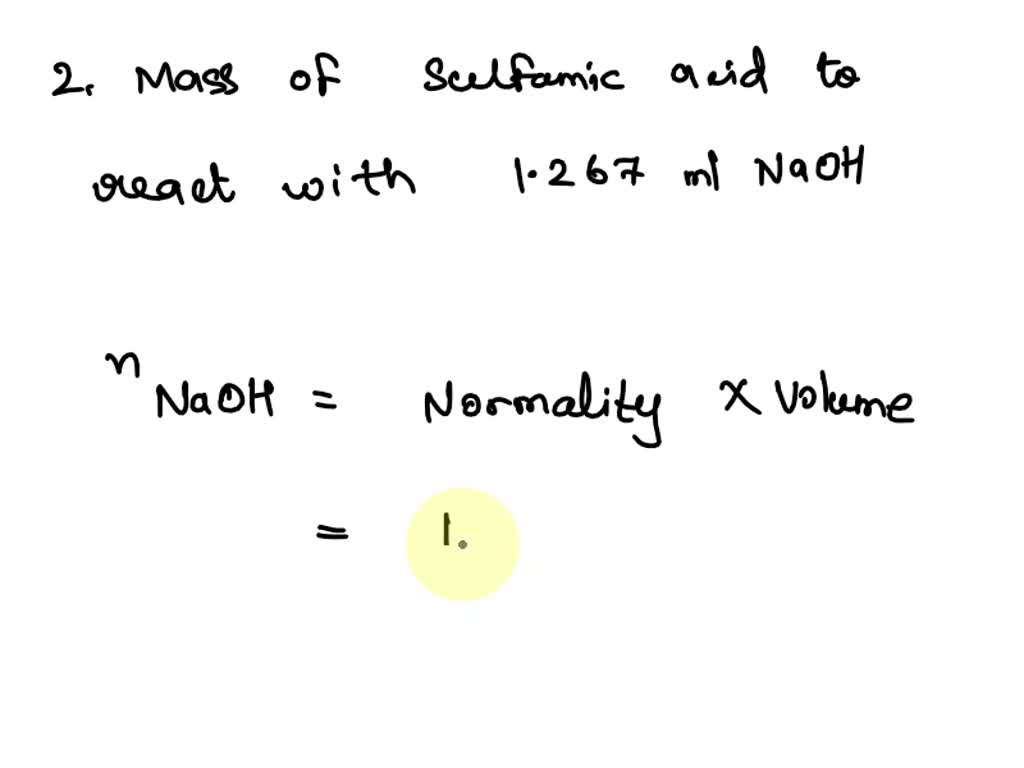 2. Mass of Sulfamic acid to
react with 1.267 ml NaOH
n NaOH = Normality x Volume
= 1.